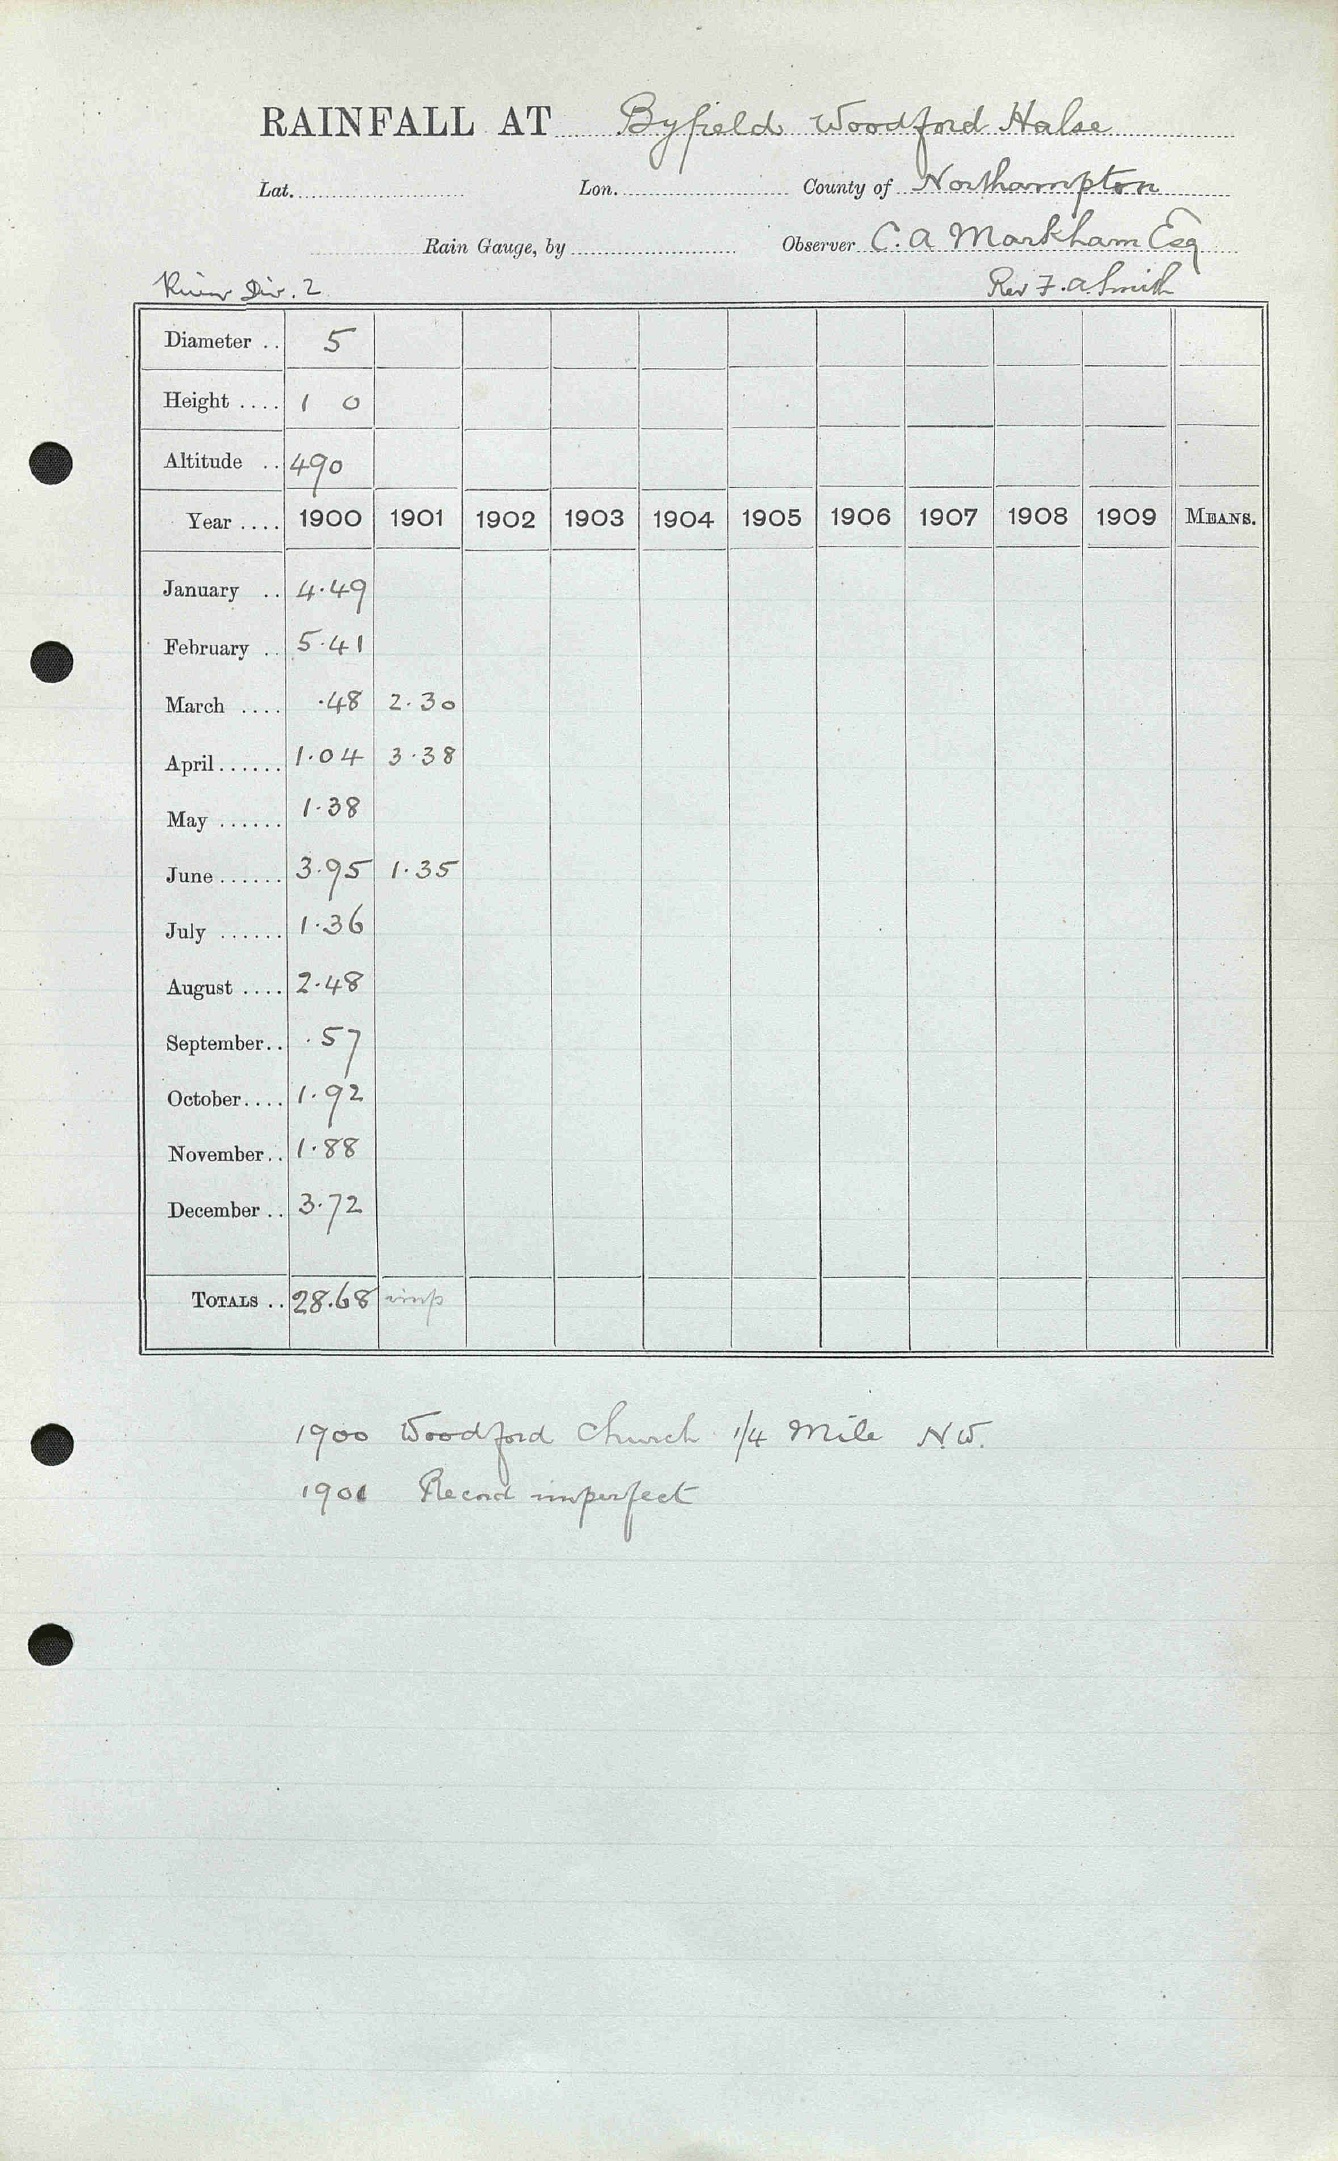 RAINFALL AT Byfield Woodford Halse
Lat. Lon. County of Northampton
Rain Gauge, by Observer C. A Markham Esq
River Div. 2 Rev F. A. Smith
Diameter .. 5
Height .... 1 0
Altitude .. 490
Year .... 1900 1901 1902 1903 1904 1905 1906 1907 1908 1909 MEANS.
January .. 4.49
February .. 5.41
March .... .48 2.30
April ...... 1.04 3.38
May ...... 1.38
June ...... 3.95 1.35
July ...... 1.36
August .... 2.48
September .. .57
October .... 1.92
November .. 1.88
December .. 3.72
TOTALS .. 28.68 imp
1900 Woodford Church 1/4 Mile N.W.
1901 Record imperfect